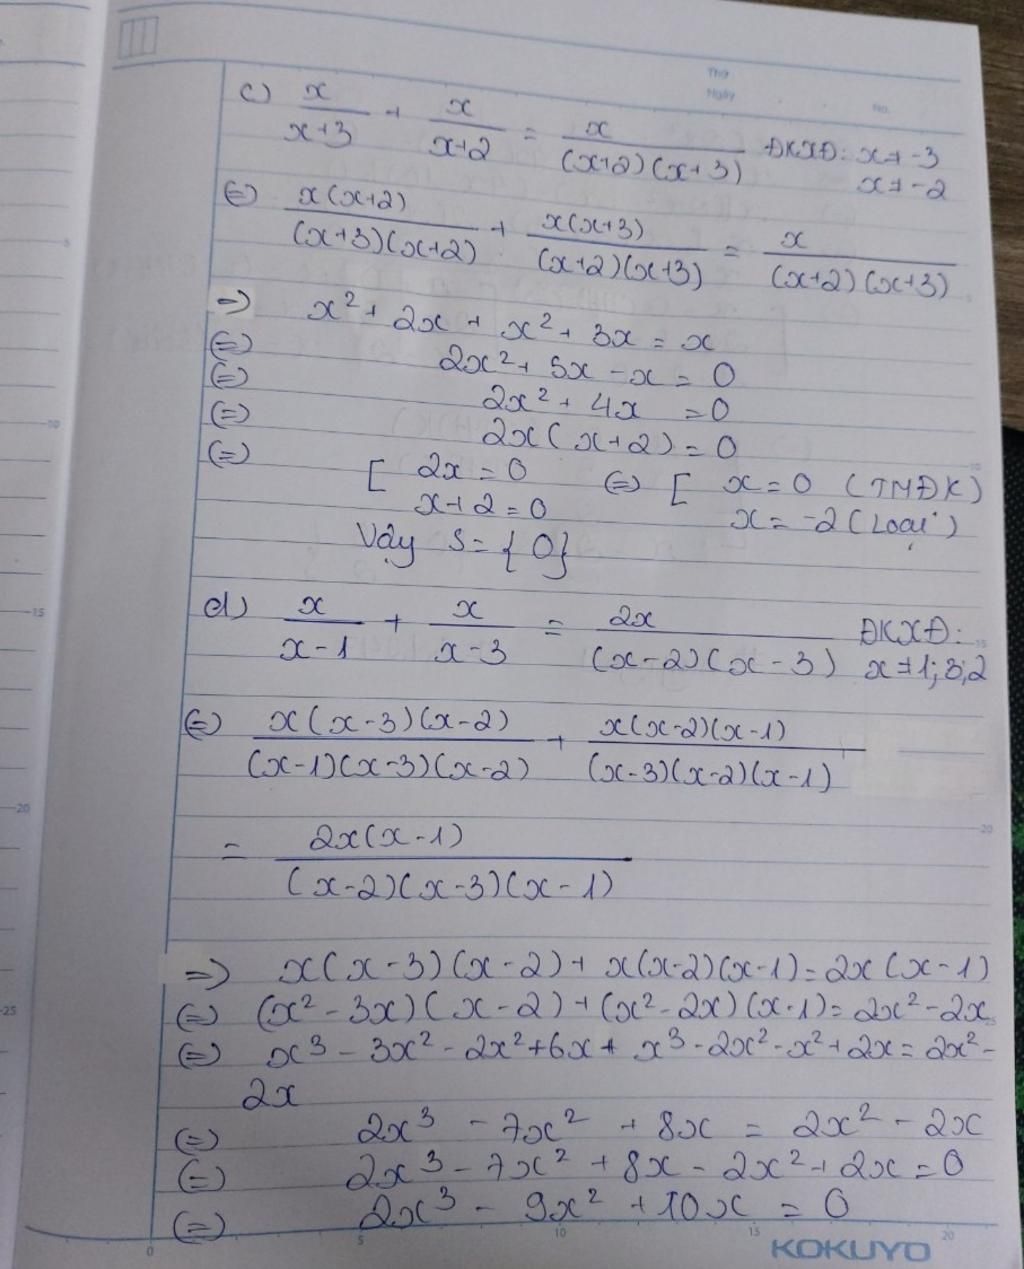 Thứ
Ngày
No.
c) x/(x+3) + x/(x+2) = x/((x+2)(x+3)) ĐKXĐ: x≠-3
x≠-2
(=) x(x+2)/((x+3)(x+2)) + x(x+3)/((x+2)(x+3)) = x/((x+2)(x+3))
=) x² + 2x + x² + 3x = x
(=) 2x² + 5x - x = 0
(=) 2x² + 4x = 0
(=) 2x(x+2) = 0
(=) [ 2x = 0 (=) [ x = 0 (TMĐK)
x+2 = 0 x = -2 (Loại)
Vậy S = {0}
d) x/(x-1) + x/(x-3) = 2x/((x-2)(x-3)) ĐKXĐ:
x≠1;3;2
(=) x(x-3)(x-2)/((x-1)(x-3)(x-2)) + x(x-2)(x-1)/((x-3)(x-2)(x-1))
= 2x(x-1)/((x-2)(x-3)(x-1))
=) x(x-3)(x-2) + x(x-2)(x-1) = 2x(x-1)
(=) (x² - 3x)(x-2) + (x² - 2x)(x-1) = 2x² - 2x
(=) x³ - 3x² - 2x² + 6x + x³ - 2x² - x² + 2x = 2x² -
2x
(=) 2x³ - 7x² + 8x = 2x² - 2x
(=) 2x³ - 7x² + 8x - 2x² + 2x = 0
(=) 2x³ - 9x² + 10x = 0
KOKUYO